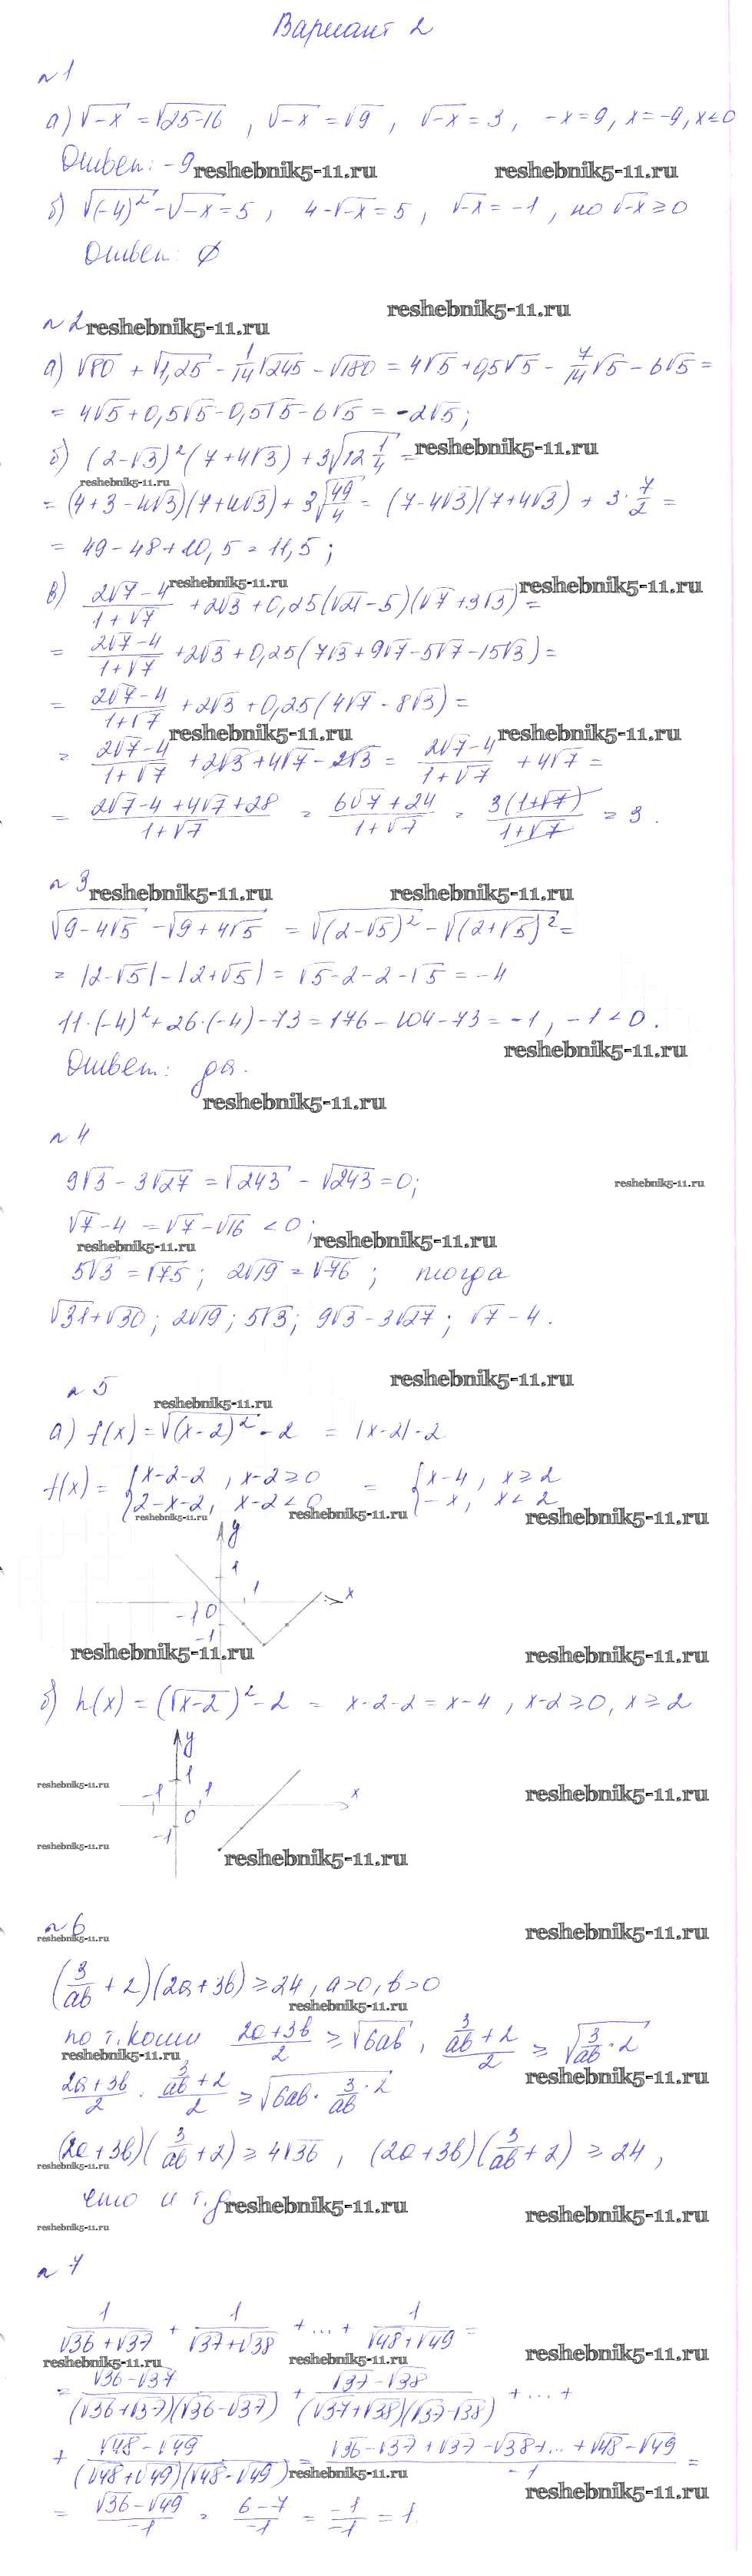 Вариант 2
№1
а) √-x = √25-16 , √-x = √9 , √-x = 3 , -x = 9, x = -9, x ≤ 0
Ответ: -9
reshebnik5-11.ru reshebnik5-11.ru
б) √(-4)² - √-x = 5 , 4 - √-x = 5 , √-x = -1 , но √-x ≥ 0
Ответ: ∅
reshebnik5-11.ru
№2 reshebnik5-11.ru
а) √80 + √1,25 - 1/14 √245 - √180 = 4√5 + 0,5√5 - 7/14 √5 - 6√5 =
= 4√5 + 0,5√5 - 0,5√5 - 6√5 = -2√5 ;
б) (2-√3)² (7+4√3) + 3√12 1/4 = reshebnik5-11.ru
reshebnik5-11.ru
= (4+3-4√3)(7+4√3) + 3√49/4 = (7-4√3)(7+4√3) + 3 · 7/2 =
= 49 - 48 + 10,5 = 11,5 ;
в) (2√7-4)/(1+√7) + 2√3 + 0,25(√21-5)(√7+3√3) =
reshebnik5-11.ru reshebnik5-11.ru
= (2√7-4)/(1+√7) + 2√3 + 0,25(7√3+9√7-5√7-15√3) =
= (2√7-4)/(1+√7) + 2√3 + 0,25(4√7-8√3) =
reshebnik5-11.ru reshebnik5-11.ru
= (2√7-4)/(1+√7) + 2√3 + 4√7 - 2√3 = (2√7-4)/(1+√7) + 4√7 =
= (2√7-4+4√7+28)/(1+√7) = (6√7+24)/(1+√7) = 3(1+√7)/(1+√7) = 3 .
№3 reshebnik5-11.ru reshebnik5-11.ru
√9-4√5 - √9+4√5 = √(2-√5)² - √(2+√5)² =
= |2-√5| - |2+√5| = √5-2-2-√5 = -4
11·(-4)² + 26·(-4) - 73 = 176 - 104 - 73 = -1 , -1 < 0 .
reshebnik5-11.ru
Ответ: да.
reshebnik5-11.ru
№4
9√3 - 3√27 = √243 - √243 = 0 ;
reshebnik5-11.ru
√7 - 4 = √7 - √16 < 0 ;
reshebnik5-11.ru reshebnik5-11.ru
5√3 = √75 ; 2√19 = √76 ; тогда
√31+√30 ; 2√19 ; 5√3 ; 9√3-3√27 ; √7-4 .
№5
reshebnik5-11.ru
reshebnik5-11.ru
а) f(x) = √(x-2)² - 2 = |x-2| - 2
f(x) = { x-2-2 , x-2 ≥ 0 = { x-4 , x ≥ 2
2-x-2 , x-2 < 0 -x , x < 2
reshebnik5-11.ru reshebnik5-11.ru reshebnik5-11.ru
y
1
1 x
-1 0
-1
reshebnik5-11.ru reshebnik5-11.ru
б) h(x) = (√x-2)² - 2 = x-2-2 = x-4 , x-2 ≥ 0, x ≥ 2
y
1
reshebnik5-11.ru -1 1 x reshebnik5-11.ru
0
-1
reshebnik5-11.ru reshebnik5-11.ru
№6
reshebnik5-11.ru reshebnik5-11.ru
(3/ab + 2)(2a+3b) ≥ 24 , a>0, b>0
reshebnik5-11.ru
по т. Коши (2a+3b)/2 ≥ √6ab , (3/ab + 2)/2 ≥ √3/ab · 2
reshebnik5-11.ru reshebnik5-11.ru
(2a+3b)/2 · (3/ab + 2)/2 ≥ √6ab · 3/ab · 2
(2a+3b)(3/ab + 2) ≥ 4√36 , (2a+3b)(3/ab + 2) ≥ 24 ,
reshebnik5-11.ru
что и т.д. reshebnik5-11.ru reshebnik5-11.ru
reshebnik5-11.ru
№7
1/(√36+√37) + 1/(√37+√38) + ... + 1/(√48+√49) =
reshebnik5-11.ru reshebnik5-11.ru reshebnik5-11.ru
= (√36-√37)/((√36+√37)(√36-√37)) + (√37-√38)/((√37+√38)(√37-√38)) + ... +
+ (√48-√49)/((√48+√49)(√48-√49)) = (√36-√37+√37-√38+...+√48-√49)/-1 =
reshebnik5-11.ru reshebnik5-11.ru
= (√36-√49)/-1 = (6-7)/-1 = -1/-1 = 1